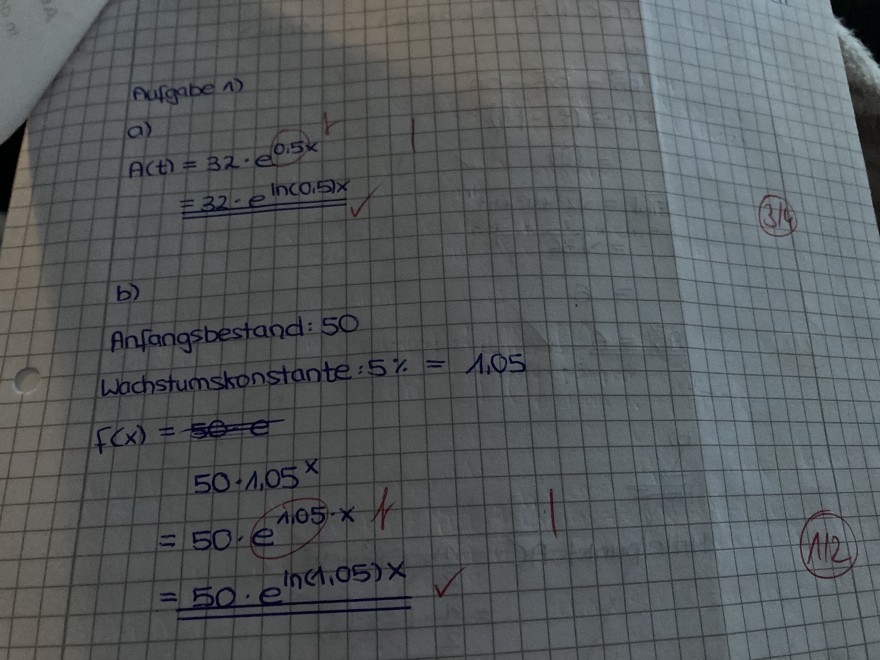 Aufgabe 1)
a)
A(t) = 32 · e^0,5x f |
= 32 · e^ln(0,5)x ✓
3/4
b)
Anfangsbestand: 50
Wachstumskonstante: 5% = 1,05
f(x) = 50 · e
50 · 1,05^x
= 50 · e^1,05·x f |
1/2
= 50 · e^ln(1,05)x ✓